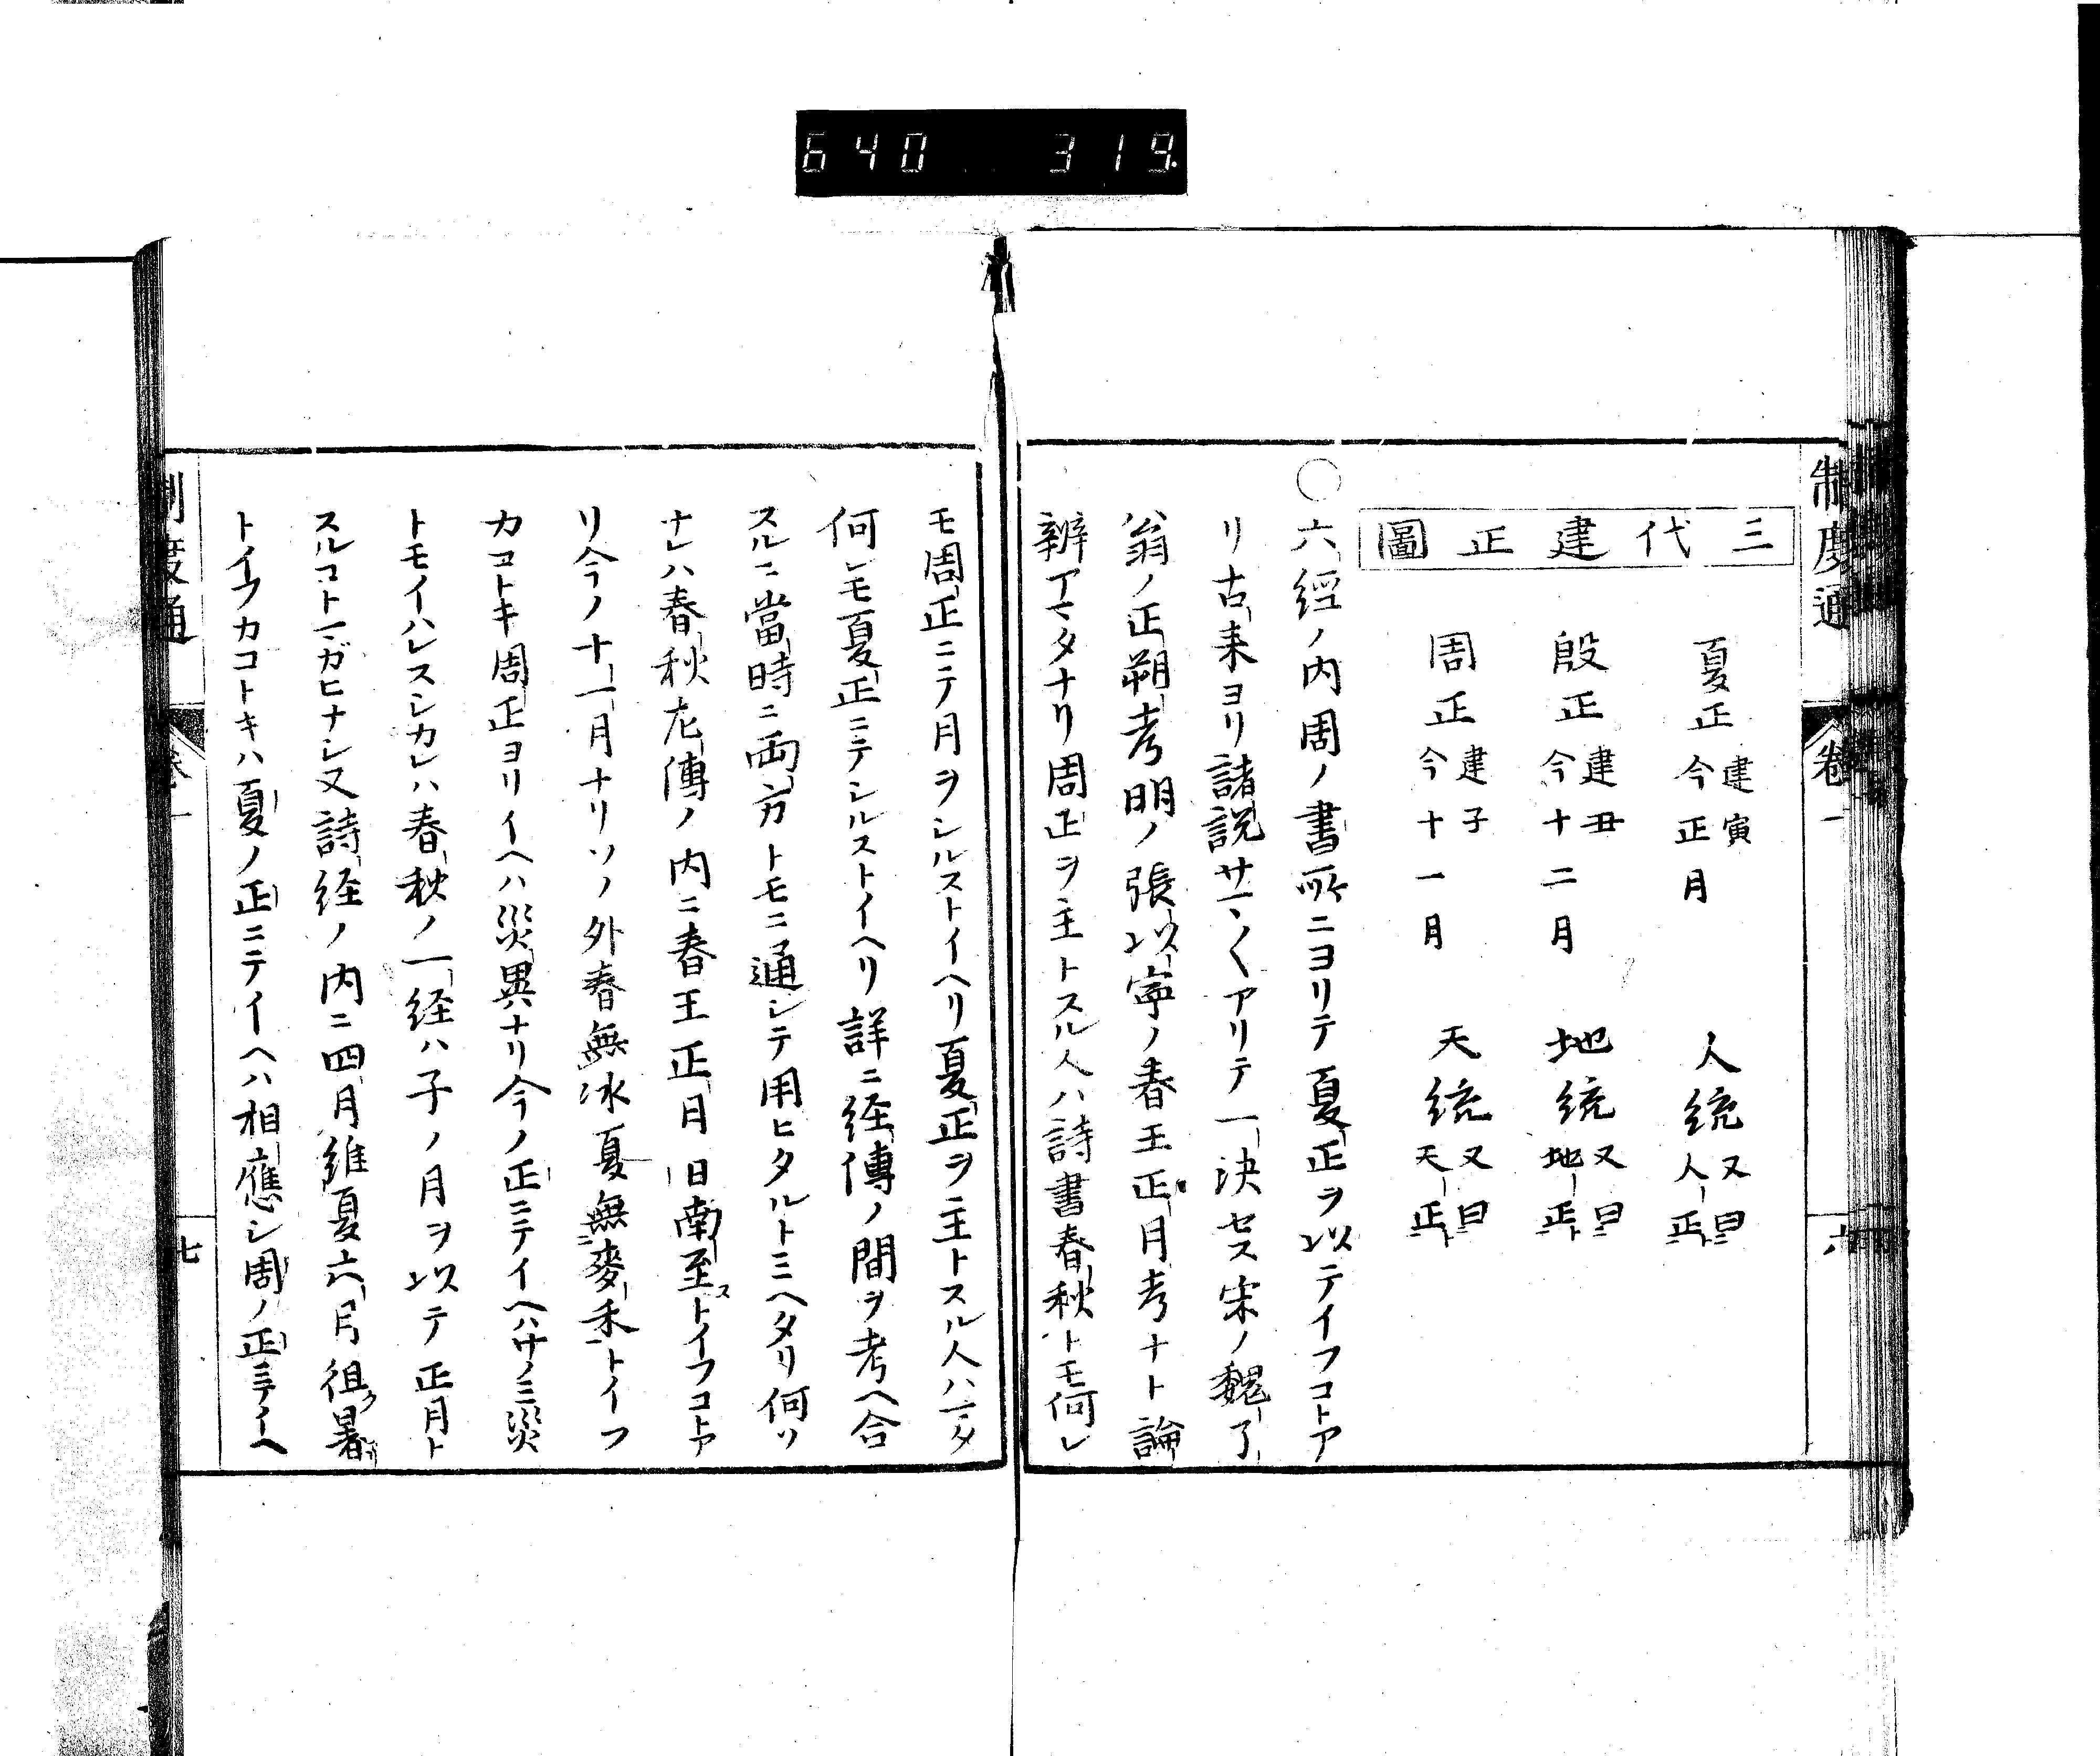 640 319
制度通 卷一 六
三代建正圖
夏正 建寅 今正月 人統 又曰人正
殷正 建丑 今十二月 地統 又曰地正
周正 建子 今十一月 天統 又曰天正
〇六經ノ内周ノ書所ニヨリテ夏正ヲ以テイフコトア
リ古来ヨリ諸説サマ〱アリテ一決セス宋ノ魏了
翁ノ正朔考明ノ張以寧ノ春王正月考ナト論
辨アマタナリ周正ヲ主トスル人ハ詩書春秋トモ何レ
モ周正ニテ月ヲシルストイヘリ夏正ヲ主トスル人ハマタ
何レモ夏正ニテシルストイヘリ詳ニ経傳ノ間ヲ考ヘ合
スルニ當時ニ両方トモニ通シテ用ヒタルトミヘタリ何ソ
ナレハ春秋左傳ノ内ニ春王正月日南至ストイフコトア
リ今ノ十一月ナリソノ外春無冰夏無麥禾トイフ
カコトキ周正ヨリイヘハ災異ナリ今ノ正ニテイヘハサノミ災
トモイハレスシカレハ春秋ノ一経ハ子ノ月ヲ以テ正月ト
スルコトマガヒナシ又詩経ノ内ニ四月維夏六月徂暑
トイフカコトキハ夏ノ正ニテイヘハ相應シ周ノ正ニテイヘ
制度通 卷一 七